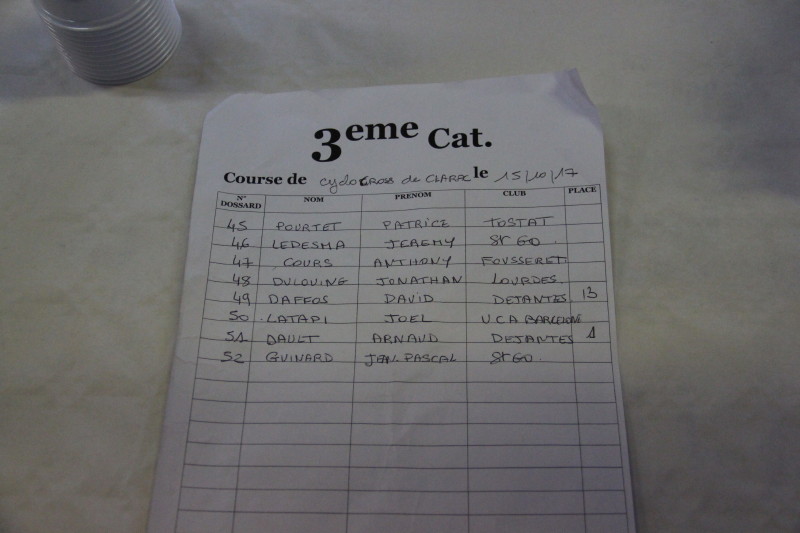 3eme Cat.
Course de cyclocross de CLARAC le 15/10/17
N° DOSSARD NOM PRENOM CLUB PLACE
45 POURTET PATRICE TOSTAT
46 LEDESMA JEREMY St GO.
47 COURS ANTHONY FOUSSERET
48 DULOUINE JONATHAN LOURDES.
49 DAFFOS DAVID DEJANTES 13
50 LATAPI JOEL UCA BARCELONE
51 DAULT ARNAUD DEJANTES 1
52 GUINARD JEAN-PASCAL St GO.